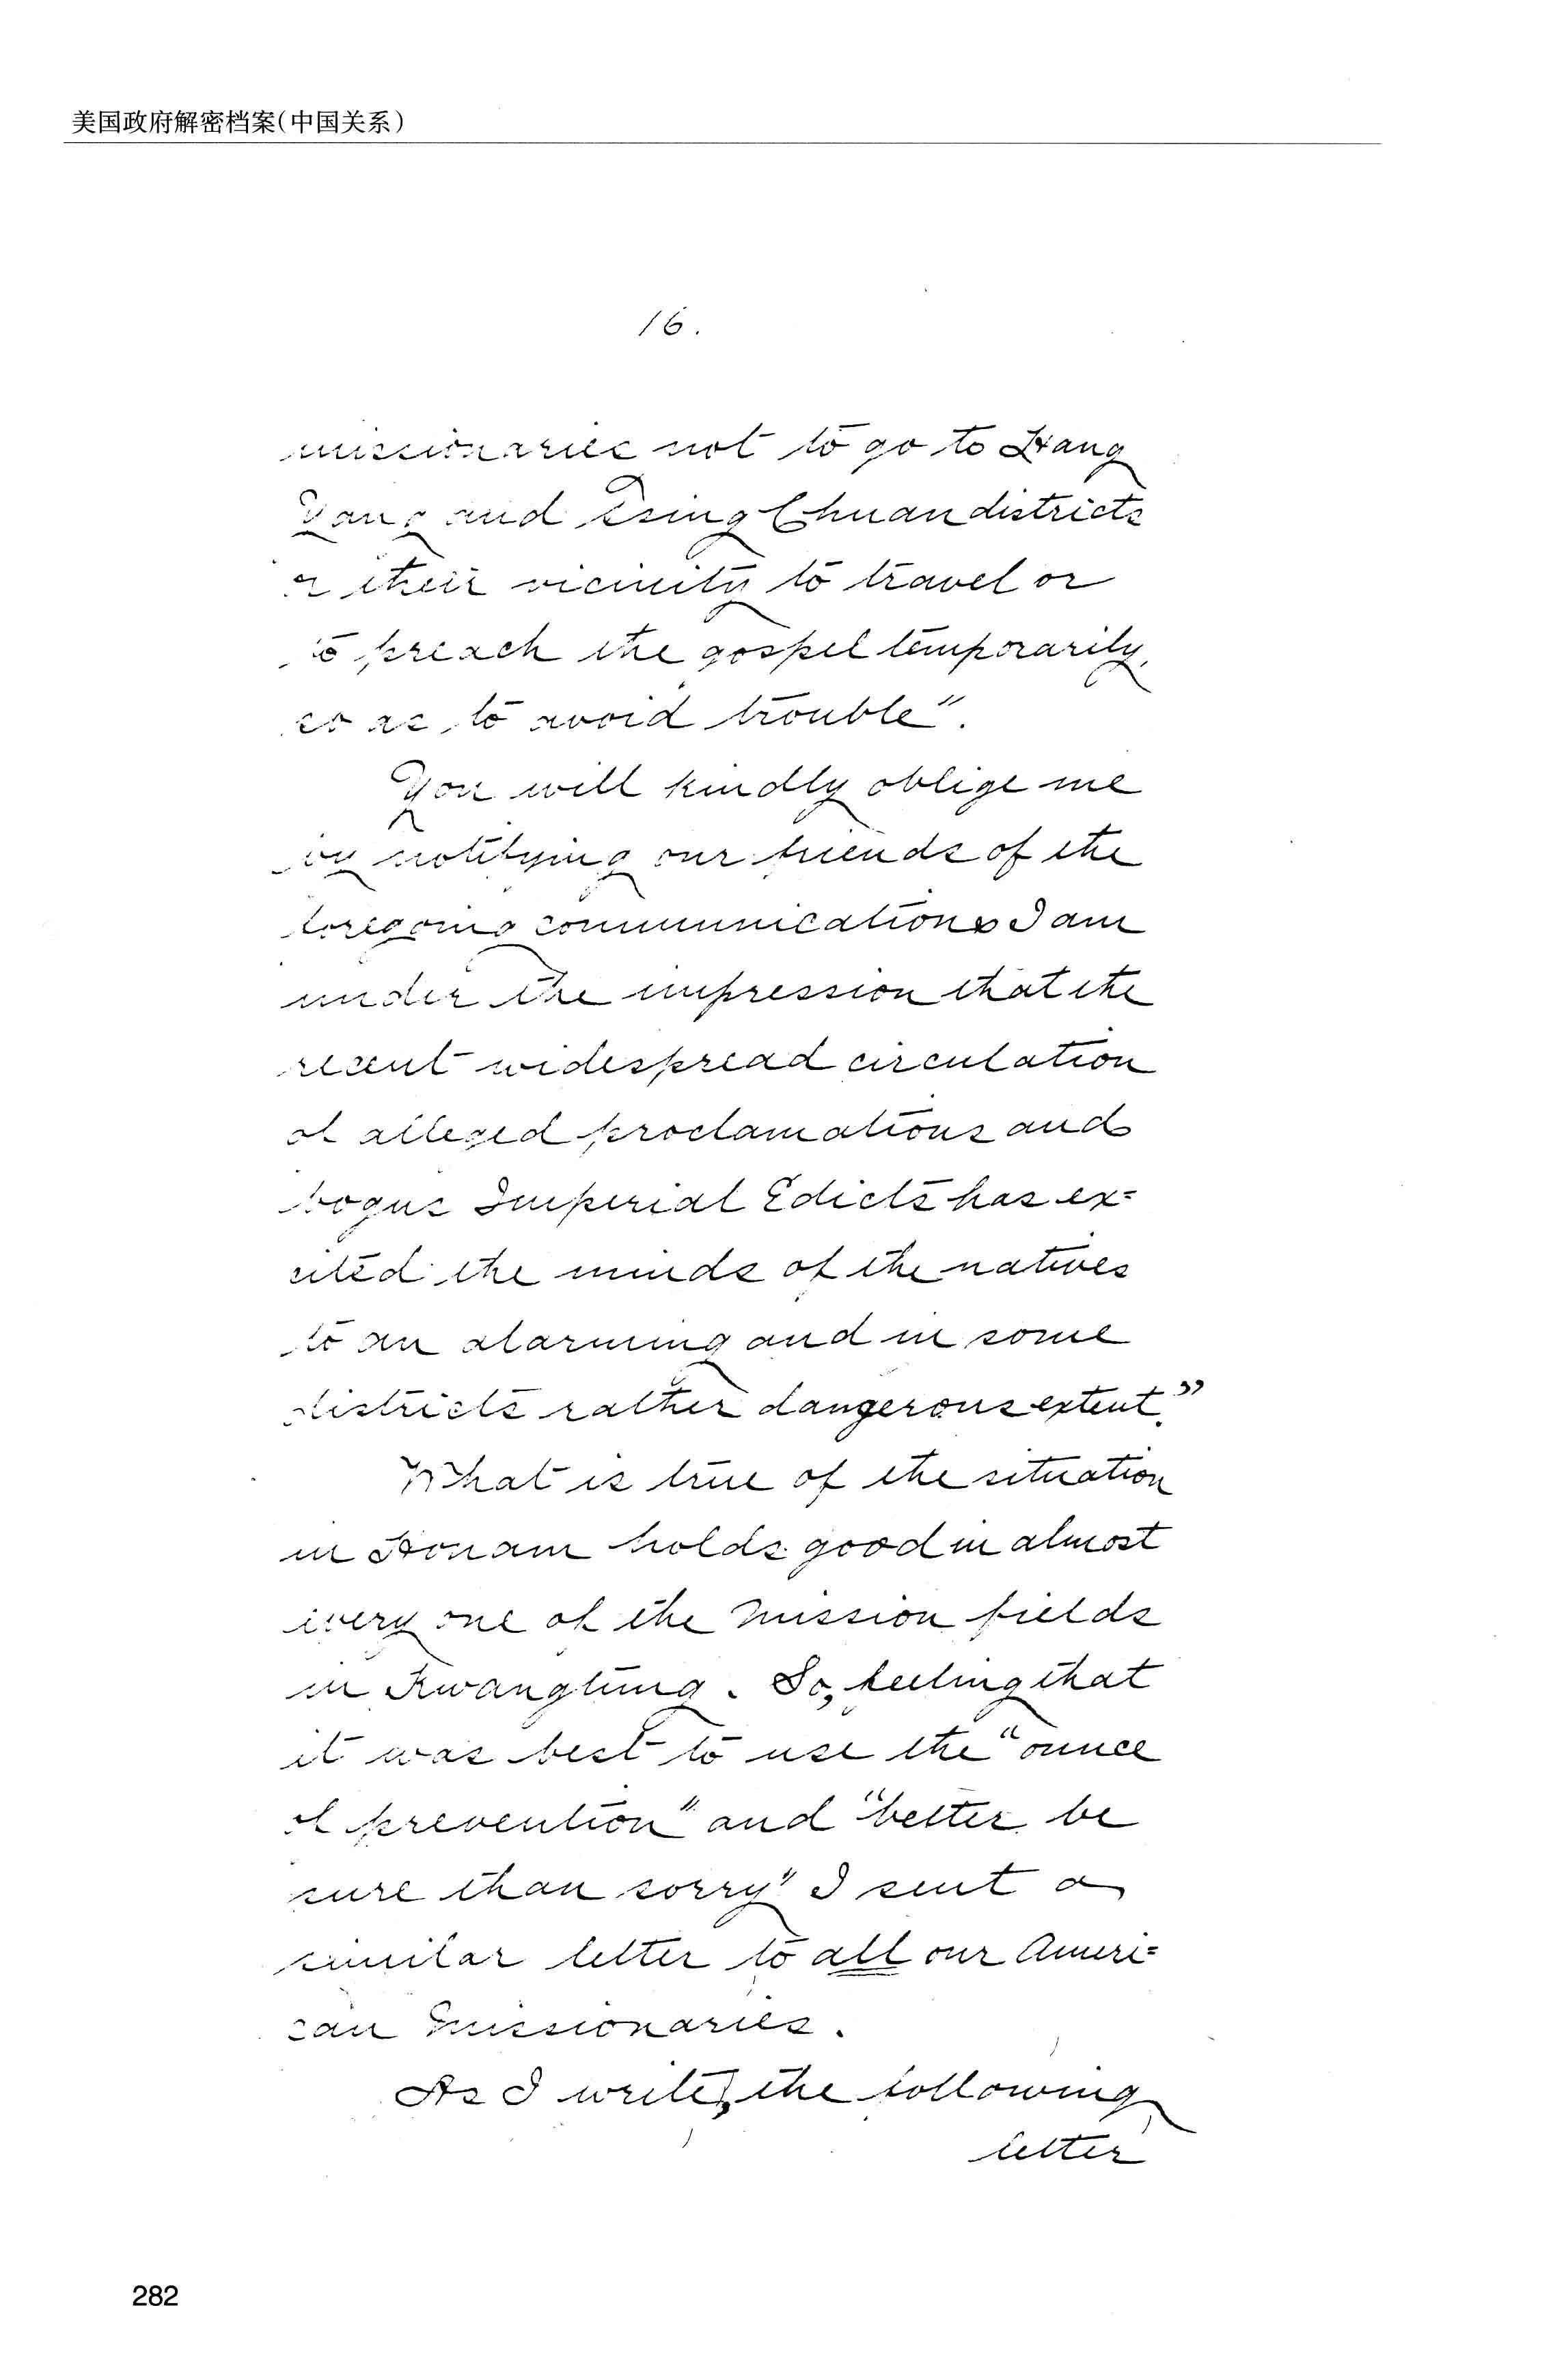 美国政府解密档案(中国关系)
16.
missionaries not to go to Hang
Yang and Tsing Chuan districts
or their vicinity to travel or
to preach the gospel temporarily,
so as to avoid trouble".
You will kindly oblige me
by notifying our friends of the
foregoing communications I am
under the impression that the
recent widespread circulation
of alleged proclamations and
bogus Imperial Edicts has ex=
cited the minds of the natives
to an alarming and in some
districts rather dangerous extent."
What is true of the situation
in Honam holds good in almost
every one of the Mission fields
in Kwangtung. So, feeling that
it was best to use the "ounce
of prevention" and "better be
sure than sorry" I sent a
similar letter to all our Ameri=
can Missionaries.
As I write, the following
letter
282